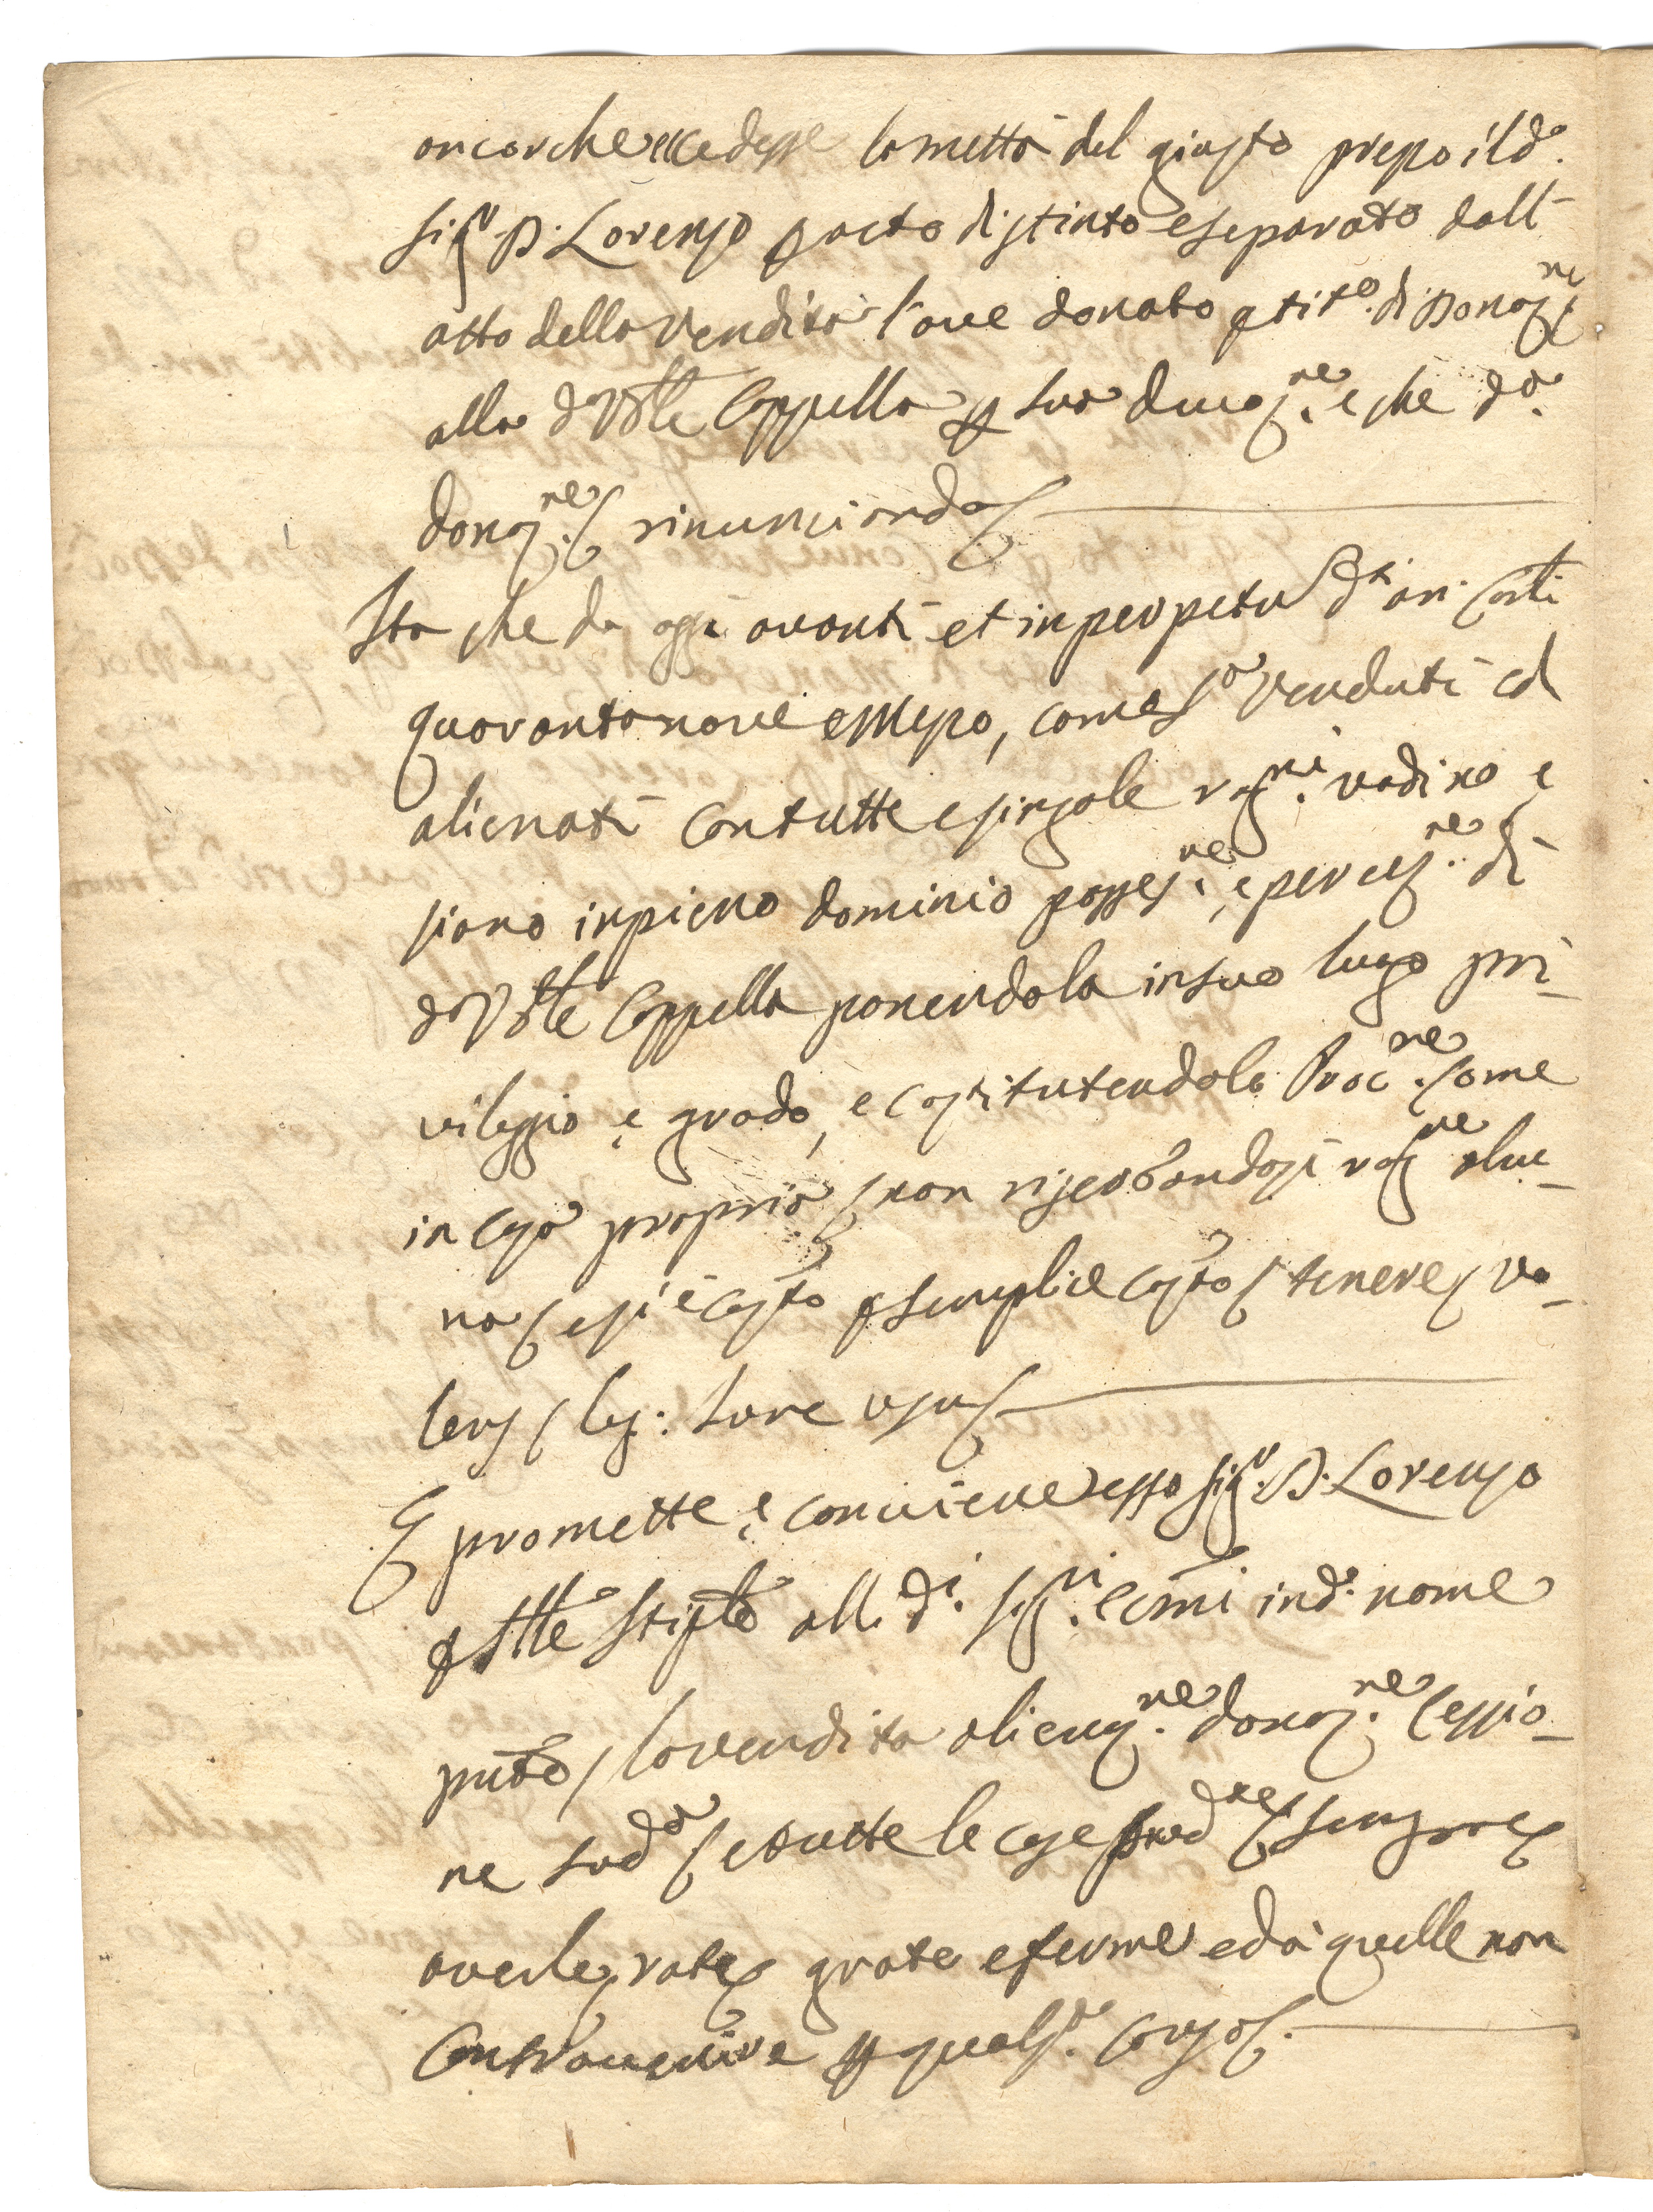 ancorche eccedesse la mettà del giusto prezzo il d.º
sig.r D. Lorenzo p atto distinto e separato dall'
atto della vendita l'ave donato p tit.º di Donaz.ne
alla d.ª Ven.le Cappella p sua Cauz.ne e che d.ª
donaz.ne rinunciando
Ita che da oggi avanti et in perpetuo d.ti an. carlini
quarantanove e mezo, come s.ª venduti ed
alienati con tutte e singole rag.ni vadino e
siano in pieno dominio posses.ne e percez.ne di
d.ª Ven.le Cappella ponendola in suo luogo pri-
vileggio e grado, e costitutendola Proc.ne come
in cosa propria non riserbandosi rag.ne alcu-
na e si è cost.to p semplice cost.to tenere va-
lens leg: Iure usus
E promette e conviene esso sig.r D. Lorenzo
p st.le stip.le alli d.i sig.ri Economi in d.º nome
p.nte la vendita alienaz.ne donaz.ne cessio-
ne sud.ª e tutte le cose pred.e sempre
averle rate grate e ferme ed à quelle non
contravenire p quals.ª causa.